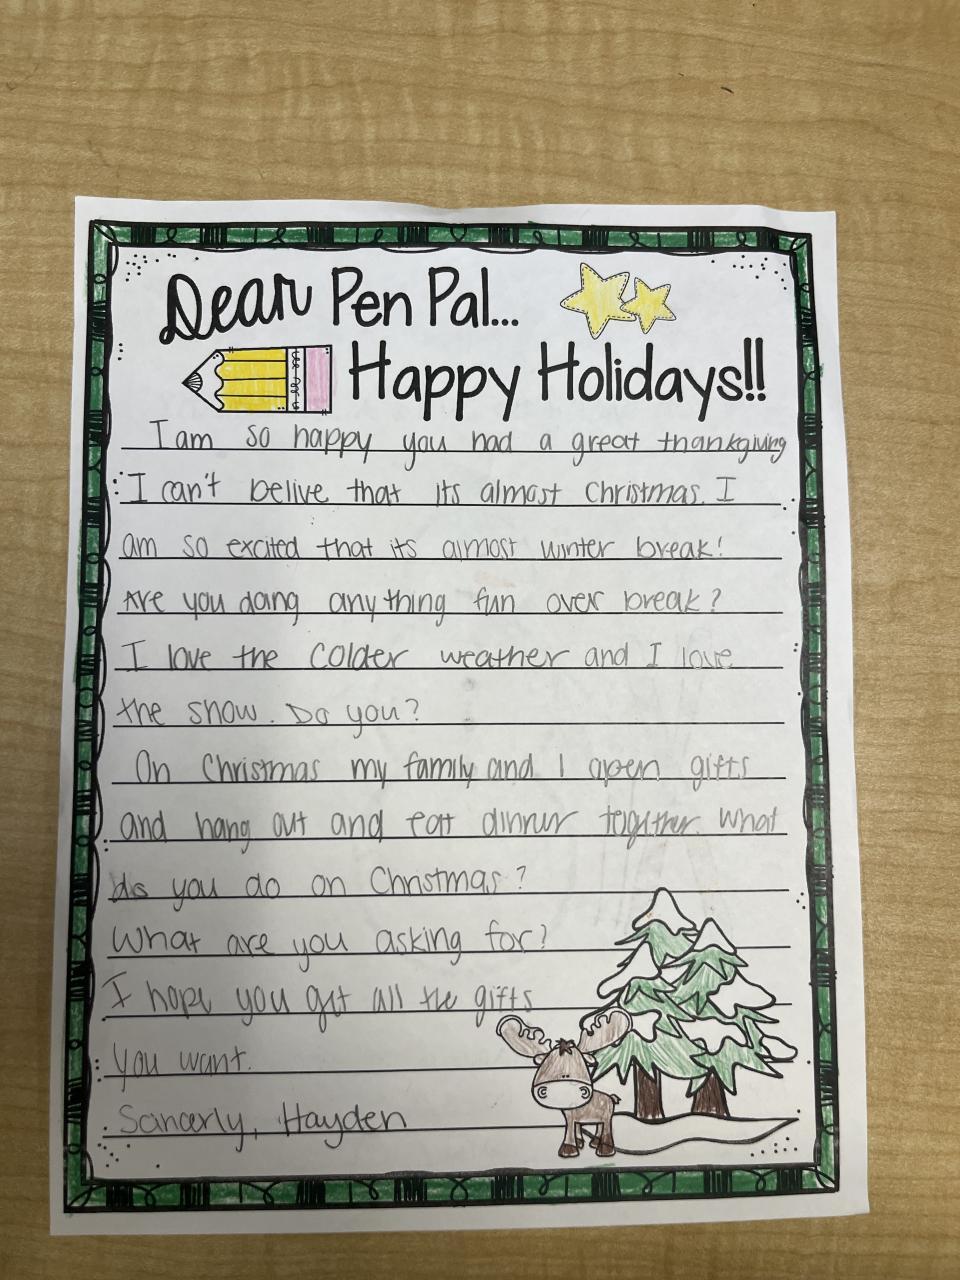 Dear Pen Pal...
Happy Holidays!!
I am so happy you had a great thankgiving
I can't belive that its almost Christmas. I
am so excited that its almost winter break!
Are you doing anything fun over break?
I love the colder weather and I love
the snow. Do you?
On Christmas my family and I open gifts
and hang out and eat dinner together. What
do you do on Christmas?
What are you asking for?
I hope you get all the gifts
you want.
Sancerly, Hayden